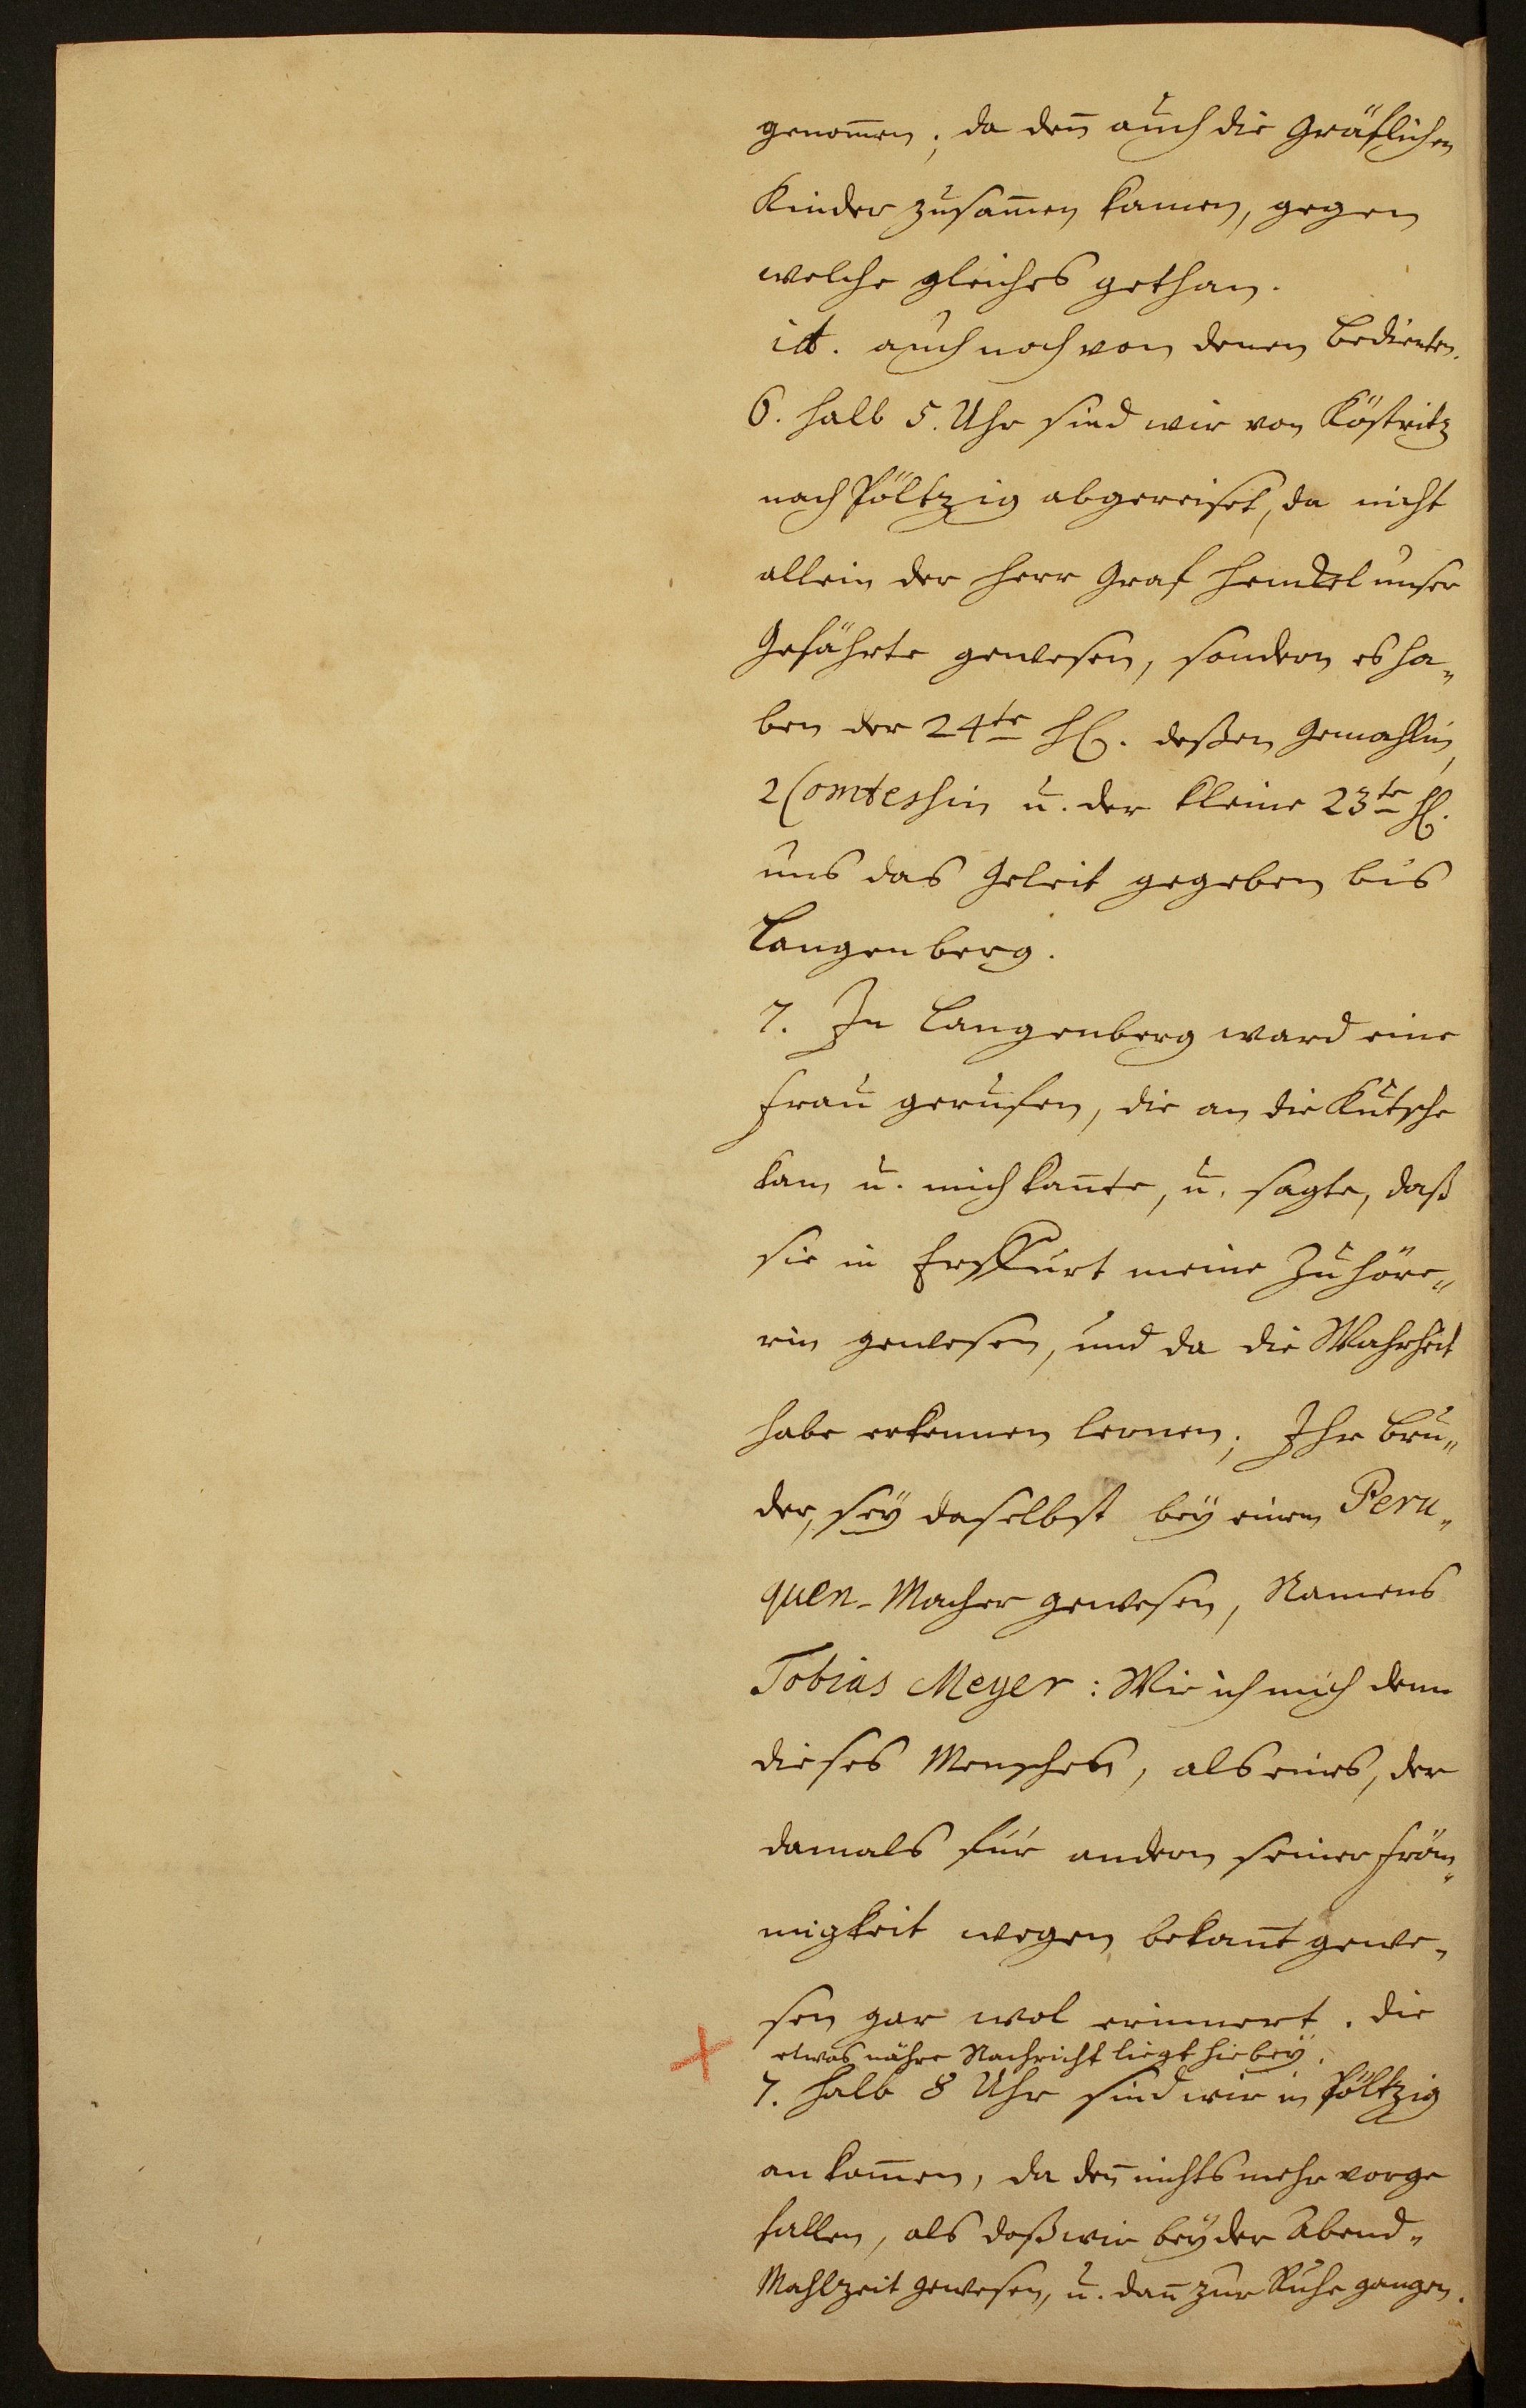 genom̄en; da den̄ auch die Gräflichen
Kinder zusam̄en kamen, gegen
welche gleiches gethan.
itt. auch noch von denen Bedienten.
6. halb 5. Uhr sind wir von Köstritz
nach Pöltzig abgereiset, da nicht
allein der Herr Graf Henckel unser
Gefährte gewesen, sondern es ha-
ben der 24te H. deßen Gemahlin,
2 Comtessin u. der kleine 23te H.
uns das Geleit gegeben bis
Langenberg.
7. In Langenberg ward eine
Frau gerufen, die an die Kutsche
kam u. mich kan̄te, u. sagte, daß
sie in Erffurt meine Zuhöre-
rin gewesen, und da die Wahrheit
habe erkennen lernen; Ihr Bru-
der, sey daselbst bey einem Peru-
quen-Macher gewesen, Namens
Tobias Meyer: Wie ich mich denn
dieses Menschen, als eines, der
damals für andern seiner Fröm-
migkeit wegen bekan̄t gewe-
sen gar wol erinnert. die
etwas nähre Nachricht liegt hiebey.
7. halb 8 Uhr sind wir in Pöltzig
ankom̄en, da den̄ nichts mehr vorge
fallen, als daß wir bey der Abend-
Mahlzeit gewesen, u. dan̄ zur Ruhe gangen.